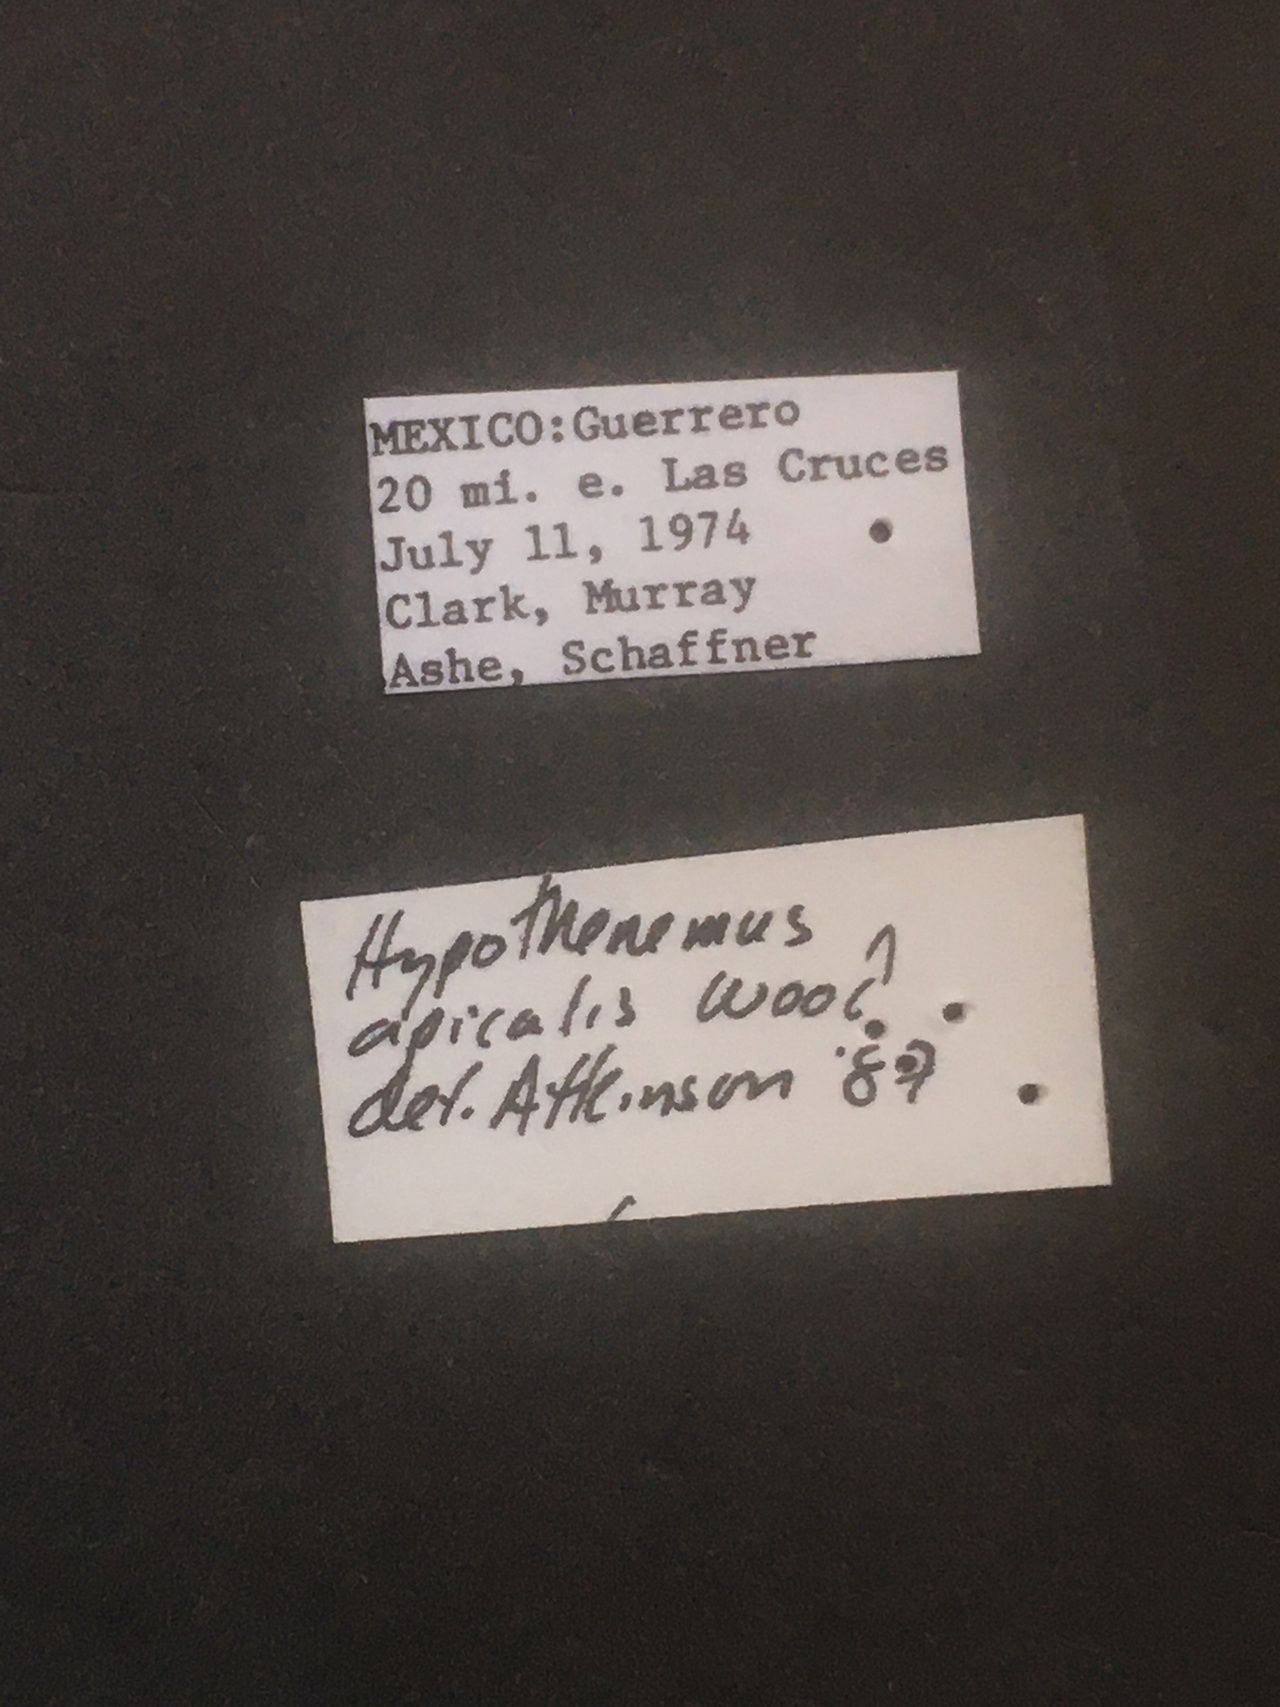 MEXICO:Guerrero
20 mi. e. Las Cruces
July 11, 1974
Clark, Murray
Ashe, Schaffner
Hypothenemus
apicalis Wood
det. Atkinson '87